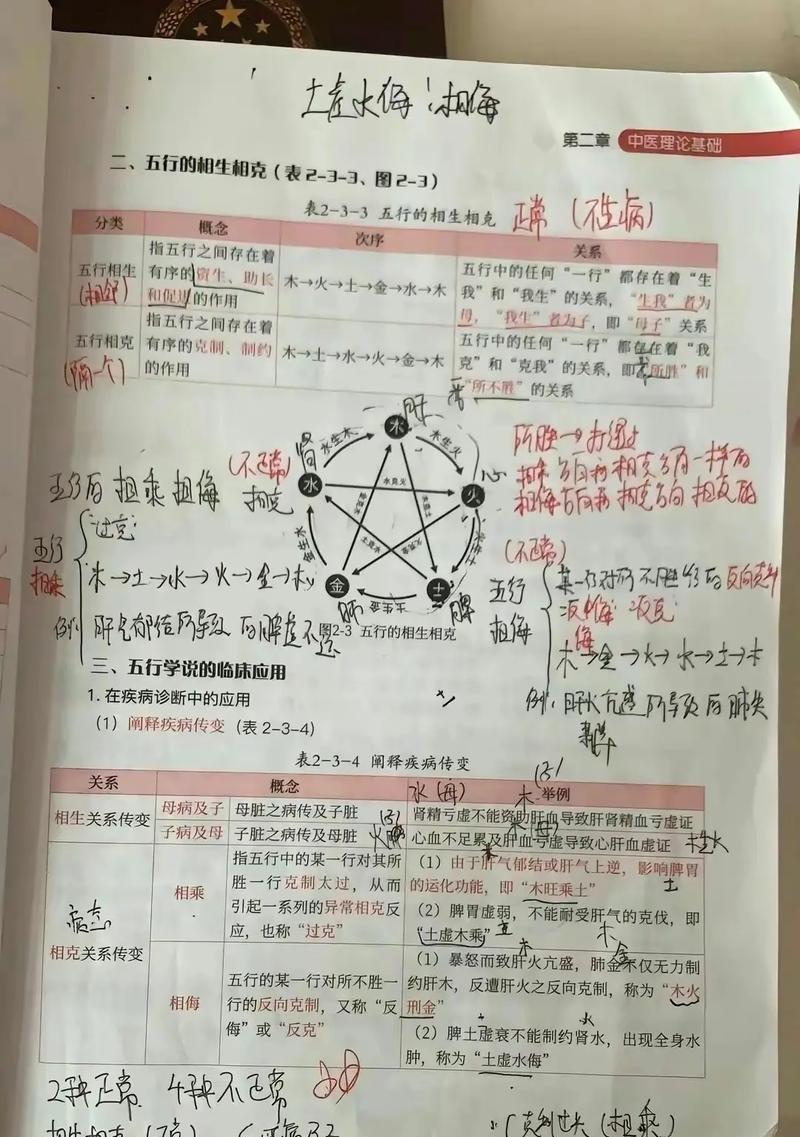 土虚水侮:相侮
第二章 中医理论基础
二、五行的相生相克(表2-3-3、图2-3)
表2-3-3 五行的相生相克 正常 (不生病)
分类 概念 次序 关系
五行相生
(相邻)
指五行之间存在着
有序的资生、助长
和促进的作用
木→火→土→金→水→木
五行中的任何“一行”都存在着“生
我”和“我生”的关系,“生我”者为
母,“我生”者为子,即“母子”关系
五行相克
(隔一个)
指五行之间存在着
有序的克制、制约
的作用
木→土→水→火→金→木
五行中的任何“一行”都存在着“我
克”和“克我”的关系,即“所胜”和
“所不胜”的关系
肝
木
肾
水
心
火
肺
金
脾
土
水生木
木生火
火生土
土生金
金生水
水克火
木克土
火克金
土克水
金克木
图2-3 五行的相生相克
五行的相乘相侮
(不正常)
相克
五行
相乘
过克
木→土→水→火→金→木
例:肝气郁结所导致的脾虚不运
所胜→打得过
相乘方向和相克方向一样的
相侮方向和相克方向相反的
(不正常)
五行
相侮
某一行对所不胜行的反向克制
反侮 反克
侮
木→金→火→水→土→木
例:肝火亢盛所导致的肺失
三、五行学说的临床应用
1.在疾病诊断中的应用
(1)阐释疾病传变(表2-3-4)
表2-3-4 阐释疾病传变
关系 概念 举例
水(母) 木
相生关系传变
母病及子 母脏之病传及子脏 肾精亏虚不能资助肝血导致肝肾精血亏虚证
子病及母 子脏之病传及母脏 心血不足累及肝血亏虚导致心肝血虚证
火 木(母) 木生火
病态
相克关系传变
相乘
指五行中的某一行对其所
胜一行克制太过,从而
引起一系列的异常相克反
应,也称“过克”
(1)由于肝气郁结或肝气上逆,影响脾胃
的运化功能,即“木旺乘土”
土
(2)脾胃虚弱,不能耐受肝气的克伐,即
“土虚木乘”
木
木
金
相侮
五行的某一行对所不胜一
行的反向克制,又称“反
侮”或“反克”
(1)暴怒而致肝火亢盛,肺金不仅无力制
约肝木,反遭肝火之反向克制,称为“木火
刑金”
土 水
(2)脾土虚衰不能制约肾水,出现全身水
肿,称为“土虚水侮”
2种正常 4种不正常
相生相克
克制过头(相乘)